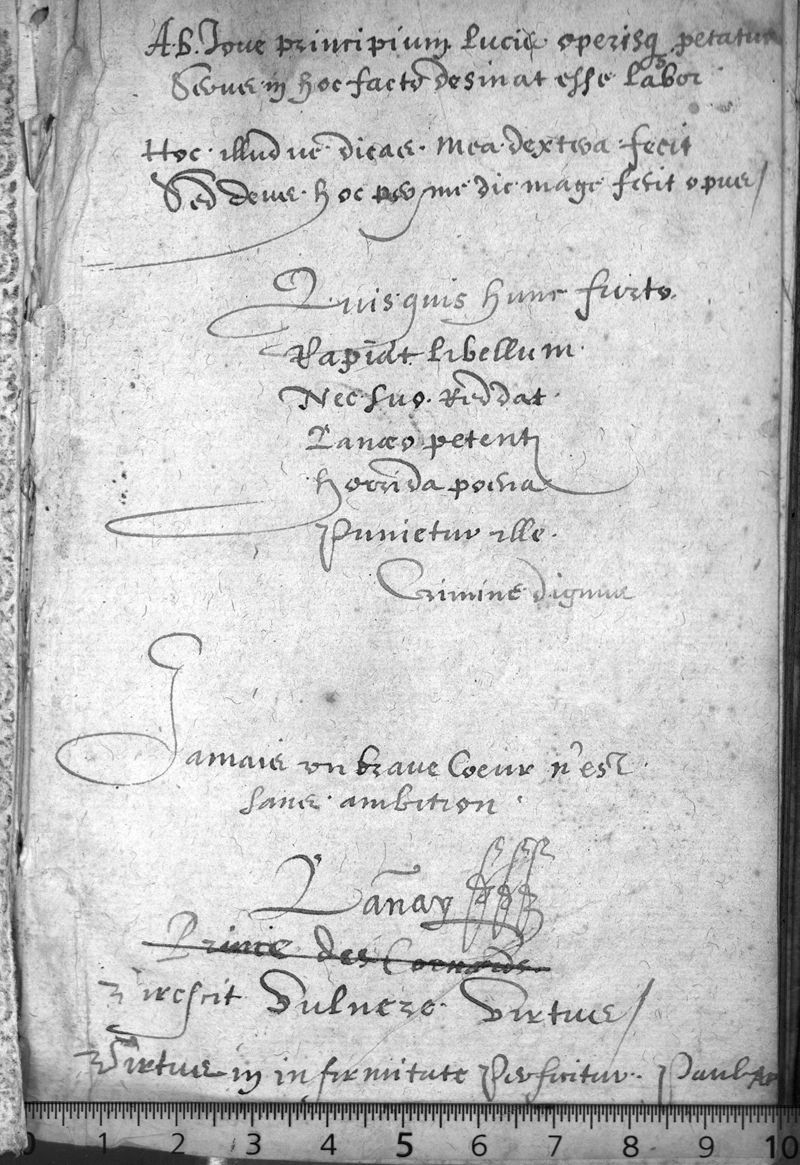 Ab. Ioue principium lucis operisq petatur
Seruus in hoc facto desinat esse labor
Hoc. illud ue dicas. mea dextera fecit
Sed deus hoc per me dic mage fecit opus
Quisquis hunc furto
Rapiat libellum
Nec suo. Reddat
Lanæo petenti
horrida poena
Punietur ille.
Crimine dignus
Jamais un braue Coeur n'est
sans ambition
Lanay
Prince des
Virescit Vulnere Virtus
Virtus in infirmitate Perficitur. Paul
0 1 2 3 4 5 6 7 8 9 10